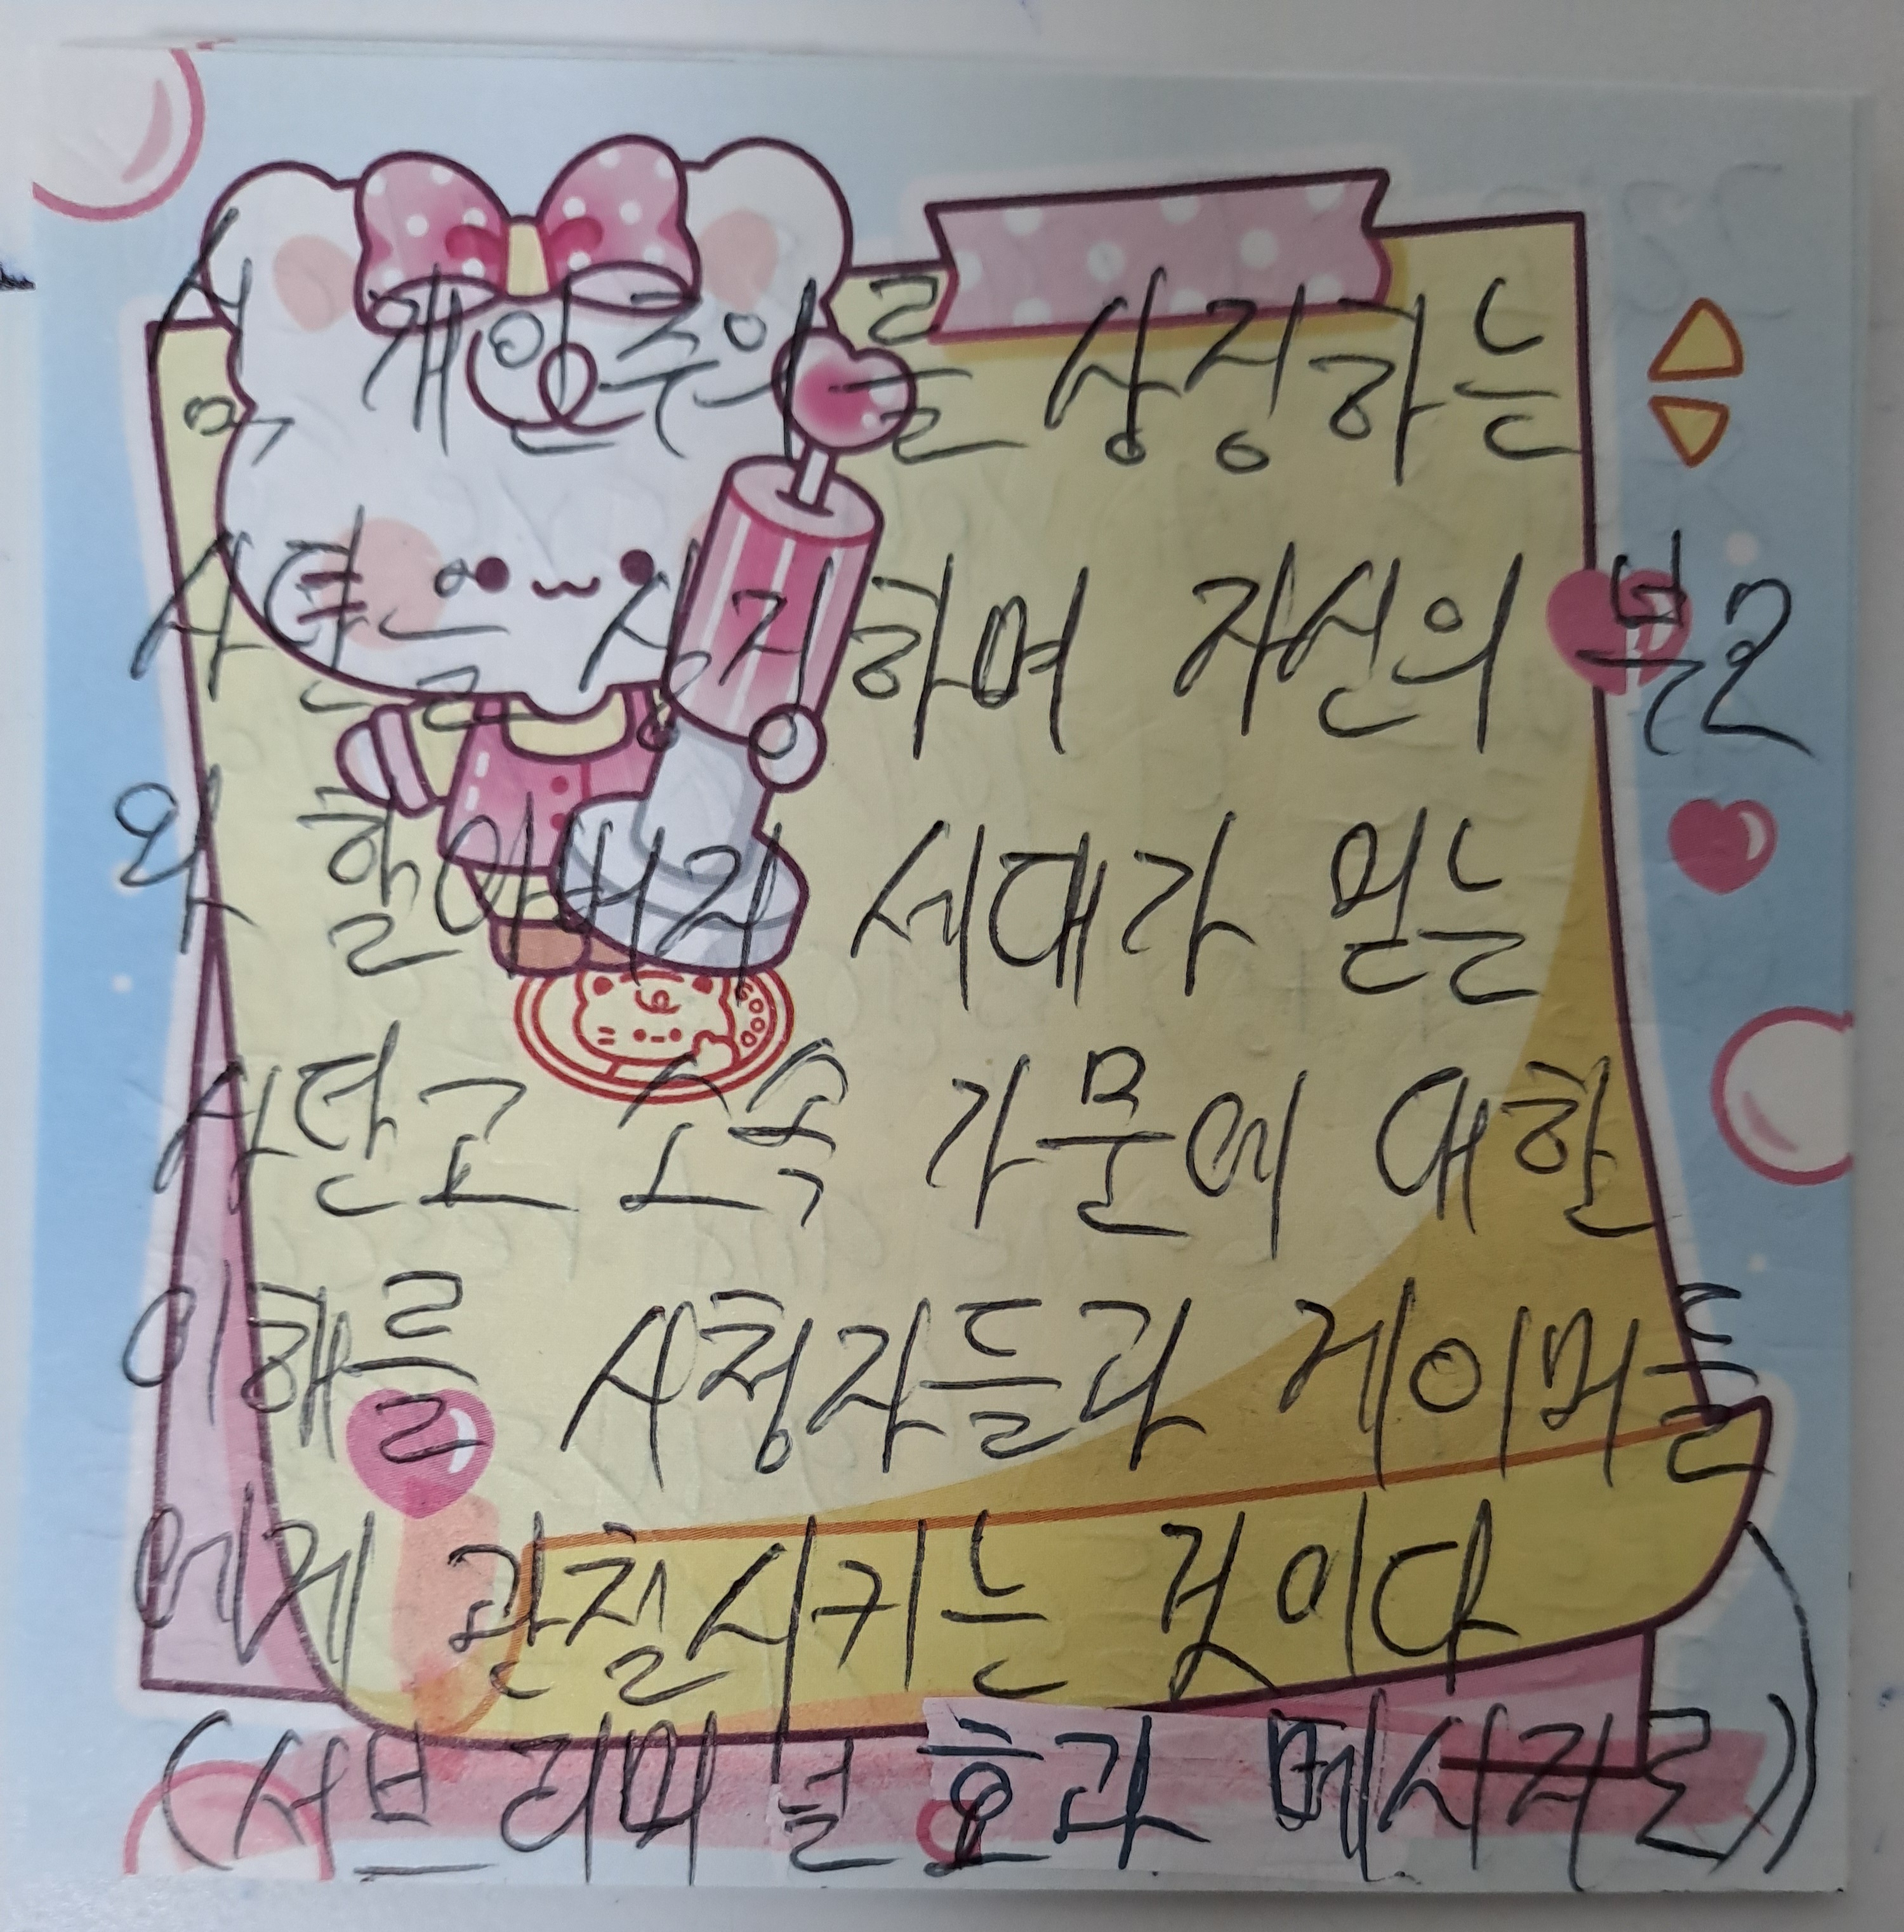 서, 개인주의를 상징하는
사탄을 상징하며 자신의 부모
와 할아버지 세대가 믿는
사탄교 소속 가문에 대한
이해를 시청자들과 게이머들
에게 관철시키는 것이다
(서브리미널 효과 메시지로)